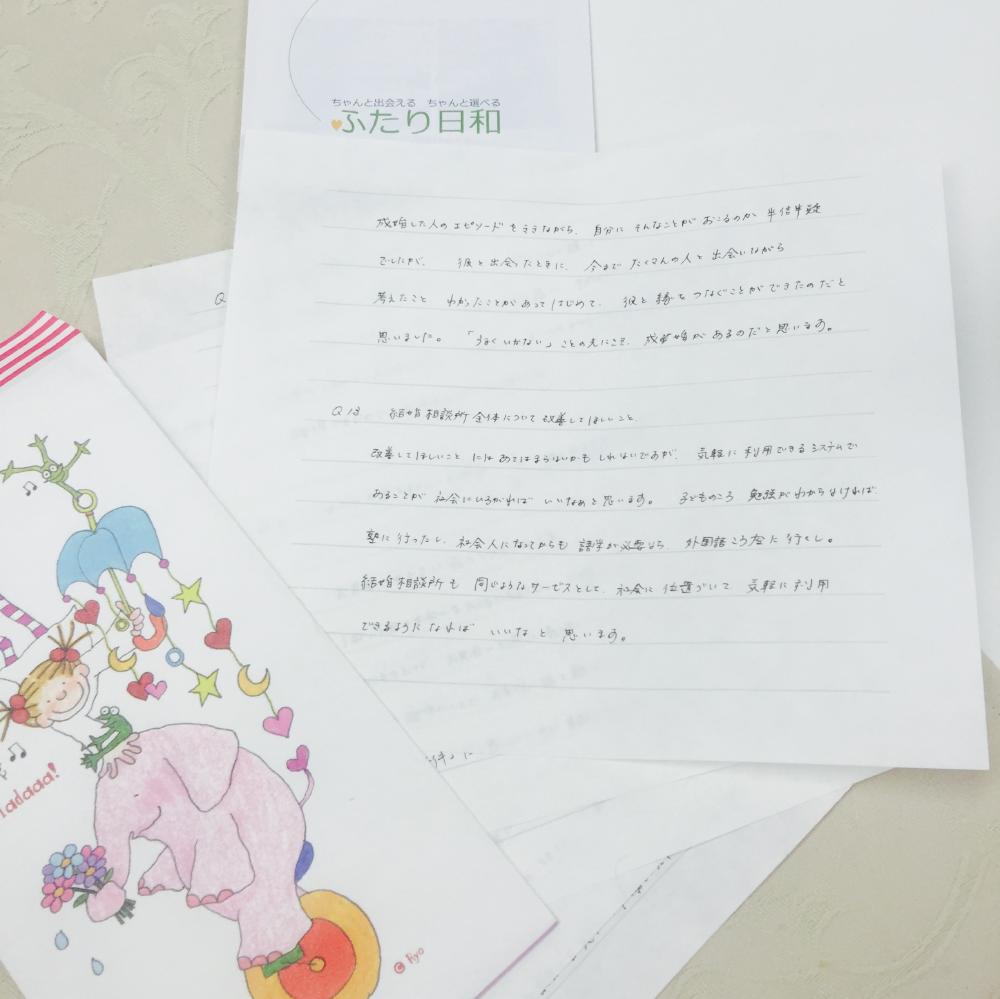 ちゃんと出会える ちゃんと選べる
ふたり日和
成婚した人のエピソードをききながら、自分にそんなことがおこるのか半信半疑
でしたが、彼と出会ったときに、今までたくさんの人と出会いながら
考えたこと わかったことがあってはじめて、彼と縁をつなぐことができたのだと
思いました。「うまくいかない」ことの先にこそ、成婚があるのだと思います。
Q13 結婚相談所全体について改善してほしいこと
改善してほしいことにはあてはまらないかもしれないですが、気軽に利用できるシステムで
あることが社会にひろがればいいなぁと思います。子どものころ勉強がわからなければ
塾に行ったし、社会人になってからも語学が必要なら、外国語こう座に行くし。
結婚相談所も同じようなサービスとして、社会に位置づいて気軽に利用
できるようになればいいなと思います。
Q
adaaa!
© Piyo